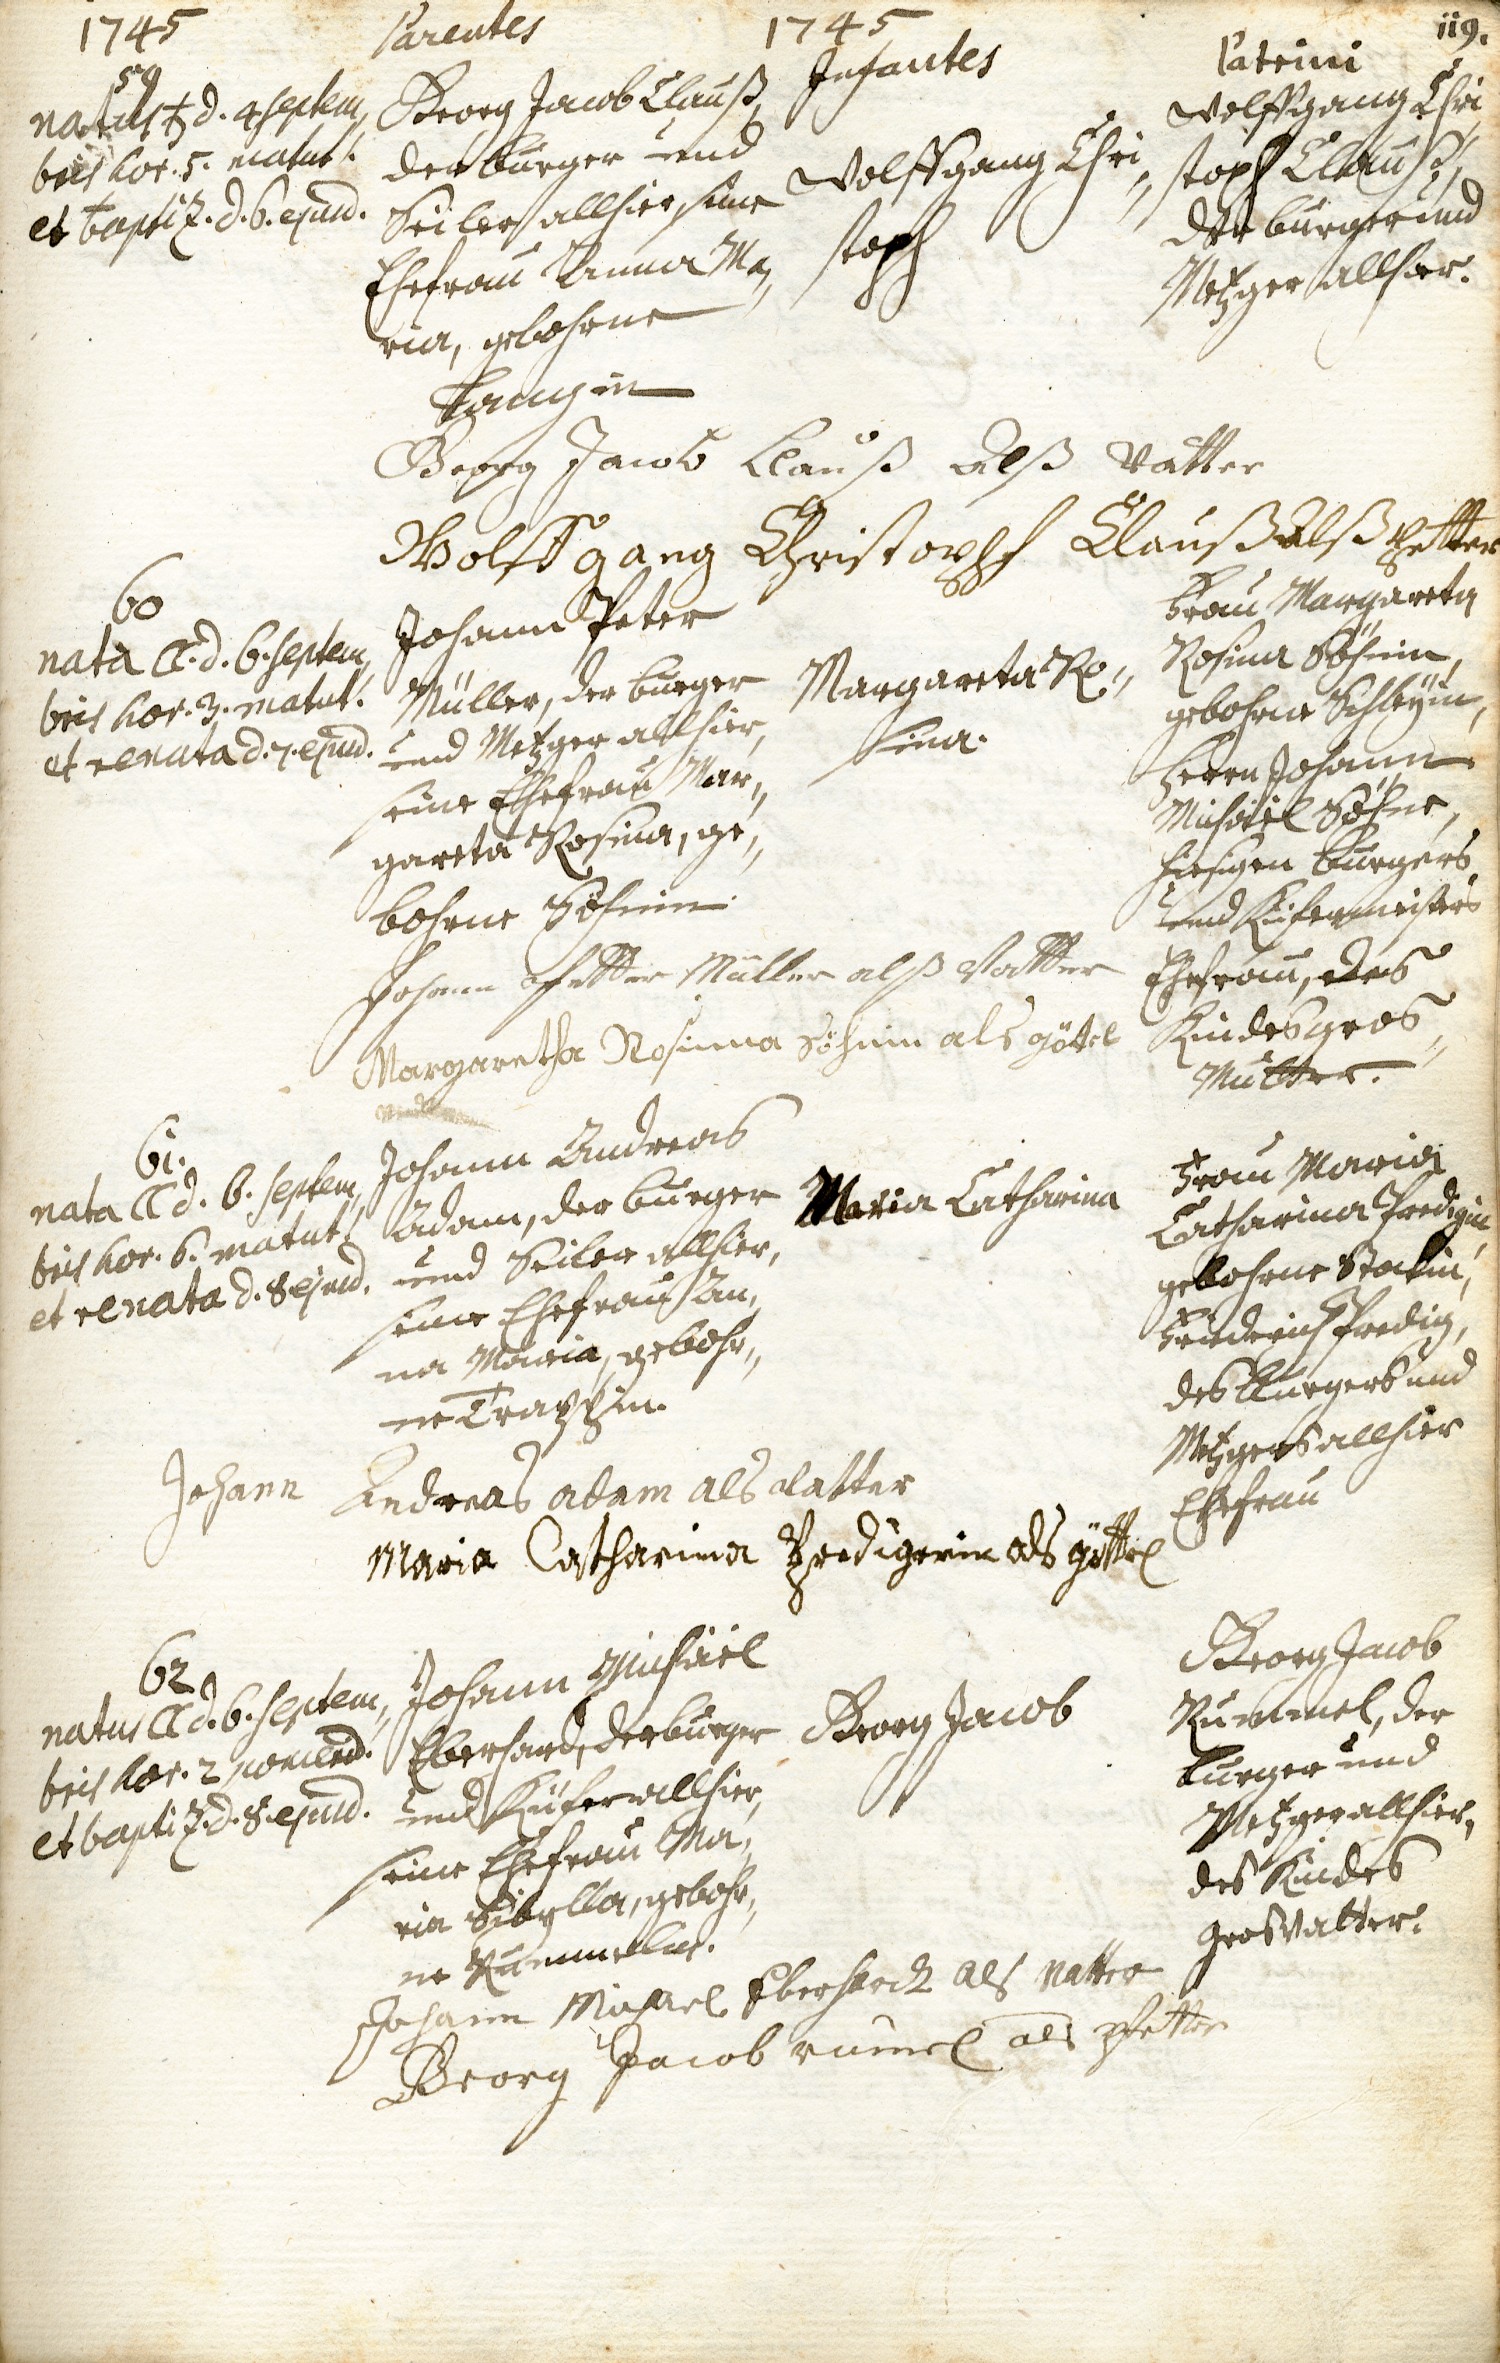 1745 Parentes 1745 Infantes Patrini 119.
59
natus ♄ d. 4 Septem„
bris hor. 5. matut.
et baptiz. d. 6. ejusd.
Georg Jacob Clauß,
der burger und
Seiler allhier, seine
Ehefrau Anna Ma„
ria, gebohrne
Langin
Wolffgang Chri„
stoph
Wolffgang Chri„
stoph Clauß,
der burger und
Metzger allhier.
Georg Jacob Clauß Alß Vatter
Wolffgang Christopff Clauß Alß Pfetter
60
nata ☾. d. 6. Septem„
bris hor. 3. matut.
et renata d. 7. ejusd.
Johann Peter
Müller, der burger
und Metzger allhier,
seine Ehefrau Mar„
gareta Rosina, ge„
bohrne Söhnin
Margareta Ro„
sina.
Frau Margareta
Rosina Söhnin,
gebohrne Schleyin,
Herrn Johann
Michäel Söhne,
hiesigen burgers
und Küfermeisters
Ehefrau, des
Kindes gros„
Mutter.
Johann Petter Müller alß Vatter
Margaretha Rosinna Söhnin als göttel
61.
nata ☾ d. 6. Septem„
bris hor. 6. matut.
et renata d. 8 ejusd.
Johann Andreas
Adam, der burger
und Seiler allhier,
seine Ehefrau An„
na Maria, gebohr„
ne Trapzin.
Maria Catharina
Frau Maria
Catharina Predigin,
gebohrne Stockin,
Friederich Predig,
des Burgers und
Metzgers allhier
Ehefrau
Johann Andreas adam als Vatter
Maria Catharina Predigerin als göttel
62
natus ☾ d. 6. Septem„
bris hor. 2 pomerid.
et baptiz. d. 8. ejusd.
Johann Michäel
Eberhard, der burger
und Küfer allhier,
seine Ehefrau Ma„
ria Sibylla, gebohr„
ne Rummelin.
Georg Jacob
Georg Jacob
Rummel, der
burger und
Metzger allhier,
des Kindes
grosvatter.
Johann Michael Eberhardt als Vatter
Georg Jacob rumel als Pfetter